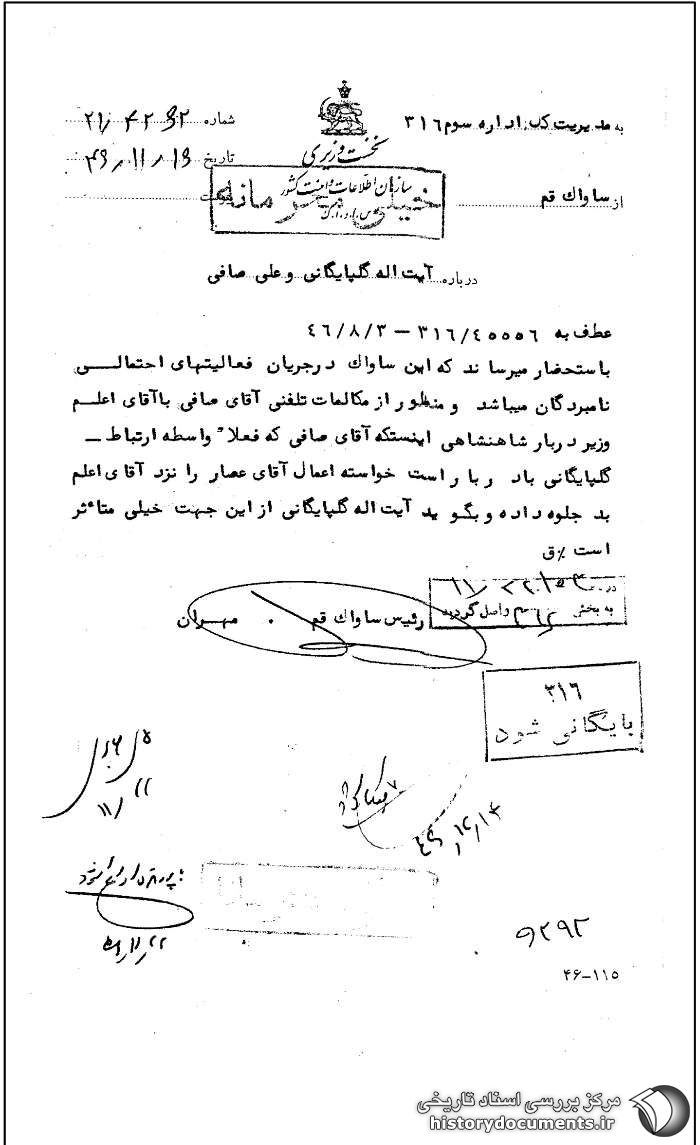 به مدیریت کل اداره سوم ۳۱۶
شماره ۲۱/۴۲۹۲
نخست وزیری
تاریخ
سازمان اطلاعات و امنیت کشور
س.ا.و.ا.ک
خیلی محرمانه
از ساواك قم
پیوست
درباره آیت اله گلپایگانی و علی صافی
عطف به ۳۱۶/۴۵۵۵۶ – ۴۶/۸/۳
باستحضار میرساند که این ساواك درجریان فعالیتهای احتمالی
نامبردگان میباشد و منظور از مکالمات تلفنی آقای صافی باآقای اعلم
وزیر دربار شاهنشاهی اینستکه آقای صافی که فعلاً واسطه ارتباط –
گلپایگانی با دربار است خواسته اعمال آقای عصار را نزد آقای اعلم
بد جلوه داده و بگوید آیت اله گلپایگانی از این جهت خیلی متأثر
است ٪ق
در
به بخش ۳۱۶ واصل گردید
رئیس ساواك قم . مهران
۳۱۶
بایگانی شود
۹۲۹۲
۴۶-۱۱۵
مرکز بررسی اسناد تاریخی
historydocuments.ir